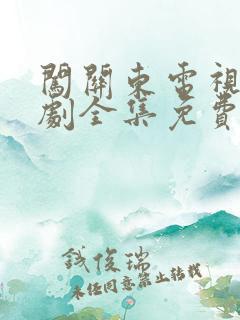 闖關東電視
劇全集免費
錢俊瑞
未經同意禁止轉載